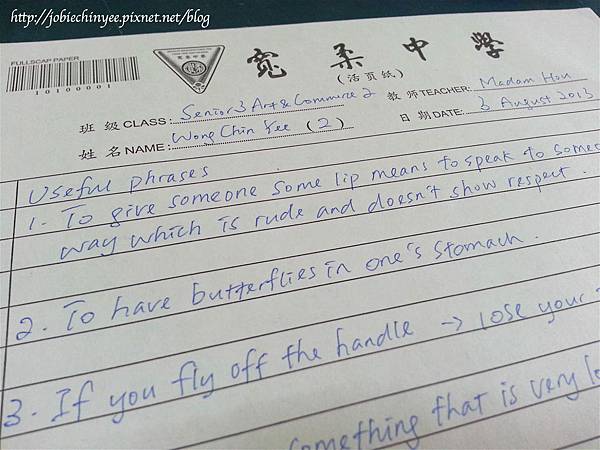 http://jobiechinyee.pixnet.net/blog
FULLSCAP PAPER
10100001
寬柔中學
(活页纸)
班 级 CLASS: Senior 3 Art & Commerce 2 教 师 TEACHER: Madam Hou
姓 名 NAME: Wong Chin Yee (2) 日 期 DATE: 3 August 2013
Useful phrases
1. To give someone some lip means to speak to
way which is rude and doesn't show respect.
2. To have butterflies in one's stomach.
3. If you fly off the handle → lose your
something that is very